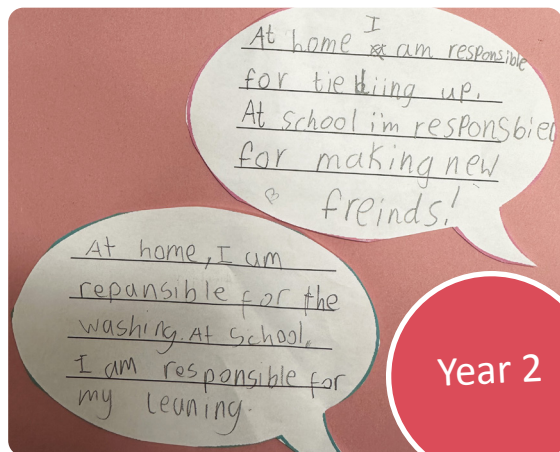 At home I am responsible
for tiediing up.
At school i'm responsbied
for making new
freinds!
At home, I am
repansible for the
washing. At School,
I am responsible for
my leuning.
Year 2